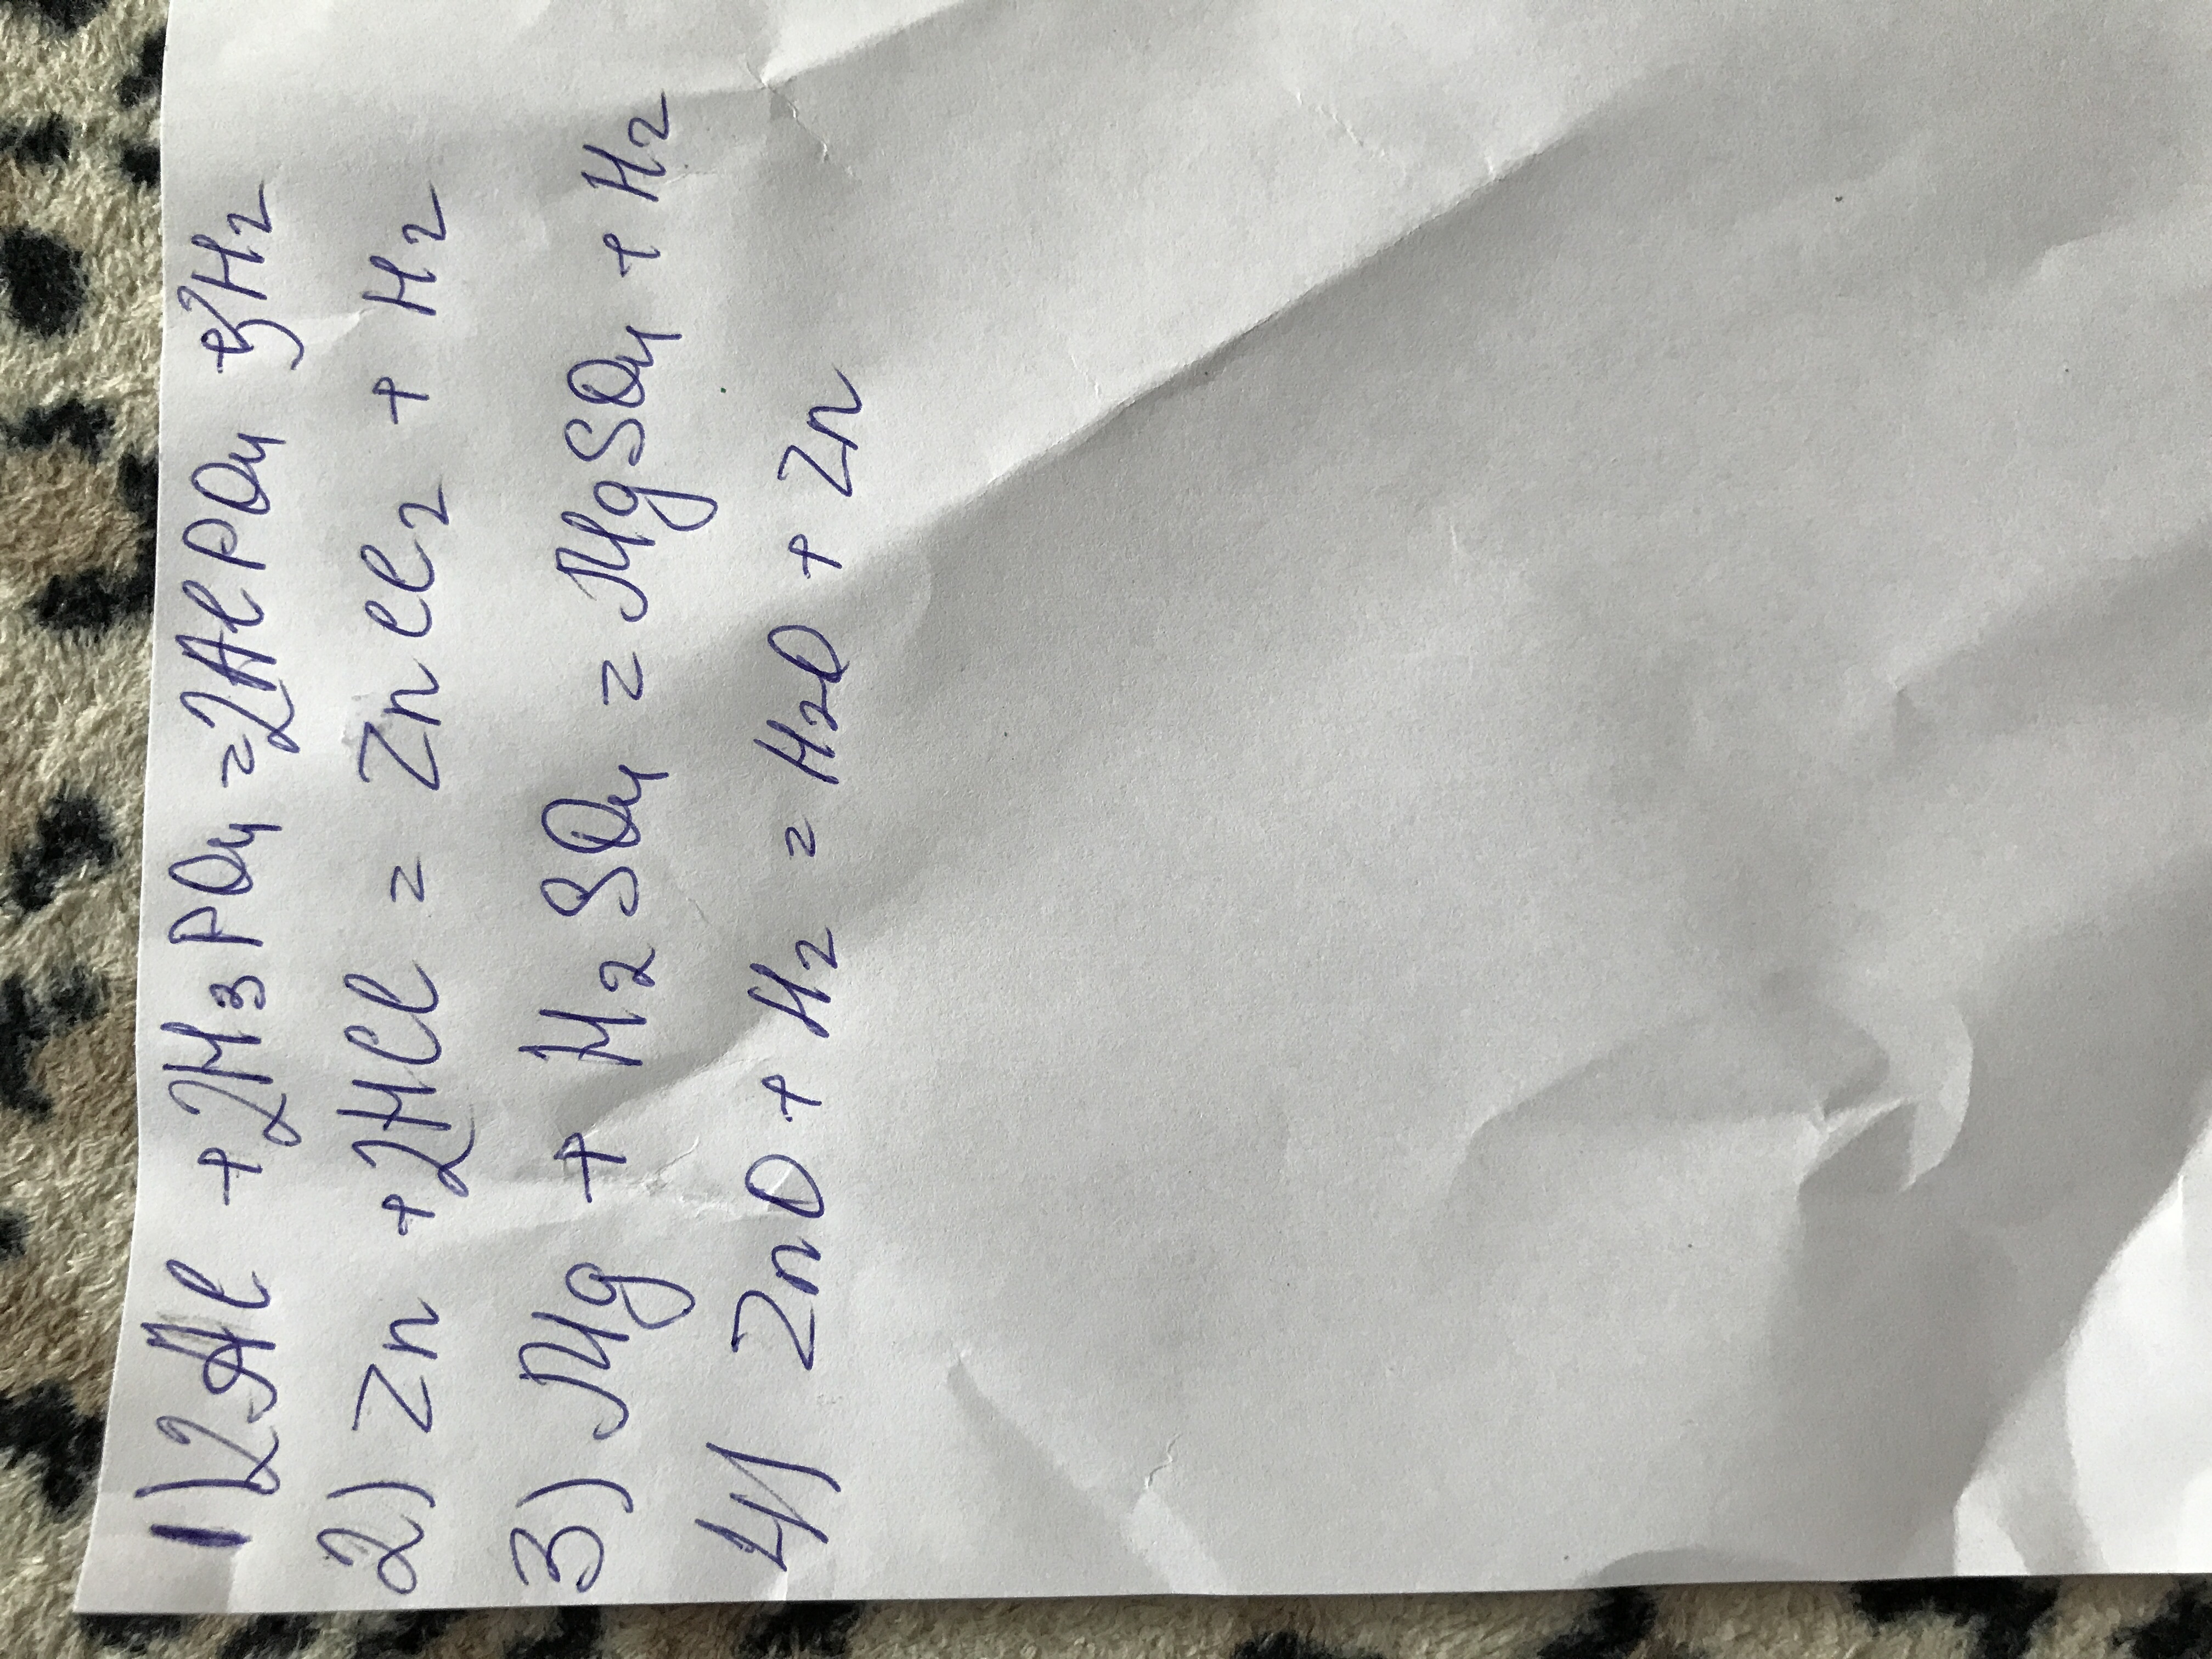 1) 2Al + 2H₃PO₄ = 2AlPO₄ + 3H₂
2) Zn + 2HCl = ZnCl₂ + H₂
3) Mg + H₂SO₄ = MgSO₄ + H₂
4) ZnO + H₂ = H₂O + Zn